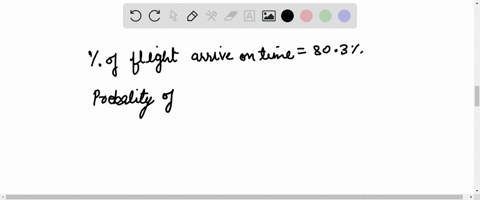 %. of flight arrive on time = 80.3%.
Probality of